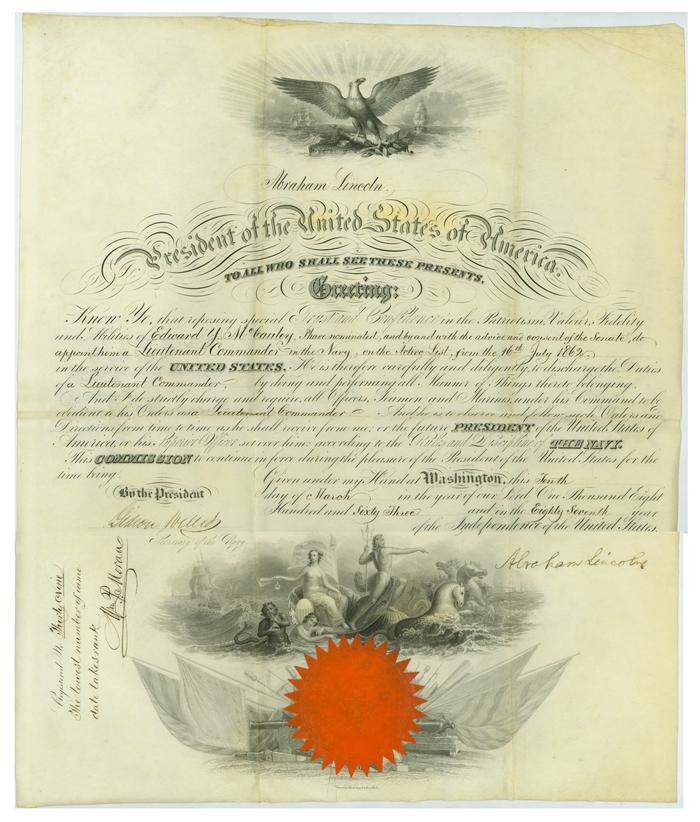 Abraham Lincoln.
President of the United States of America.
TO ALL WHO SHALL SEE THESE PRESENTS,
Greeting:
Know Ye, that reposing special Trust and Confidence in the Patriotism, Valour, Fidelity
and Abilities of Edward Y. McCauley, I have nominated, and by and with the advice and consent of the Senate, do
appoint him a Lieutenant Commander in the Navy, on the Active List, from the 16th July 1862,
in the service of the UNITED STATES. He is therefore carefully and diligently to discharge the Duties
of a Lieutenant Commander, by doing and performing all Manner of Things thereto belonging.
And I do strictly charge and require all Officers, Seamen and Marines under his Command to be
obedient to his Orders as a Lieutenant Commander And he is to observe and follow such Orders and
Directions from time to time as he shall receive from me, or the future PRESIDENT of the United States of
America, or his Superior Officer set over him, according to the Rules and Discipline of THE NAVY.
This COMMISSION to continue in force during the pleasure of the President of the United States for the
time being.
Given under my Hand at Washington, this Tenth
day of March in the year of our Lord One Thousand Eight
Hundred and Sixty Three and in the Eighty Seventh year
of the Independence of the United States.
By the President
Gideon Welles
Secretary of the Navy
Abraham Lincoln
Registered No. Thirty Nine
The lowest number of same
date takes rank